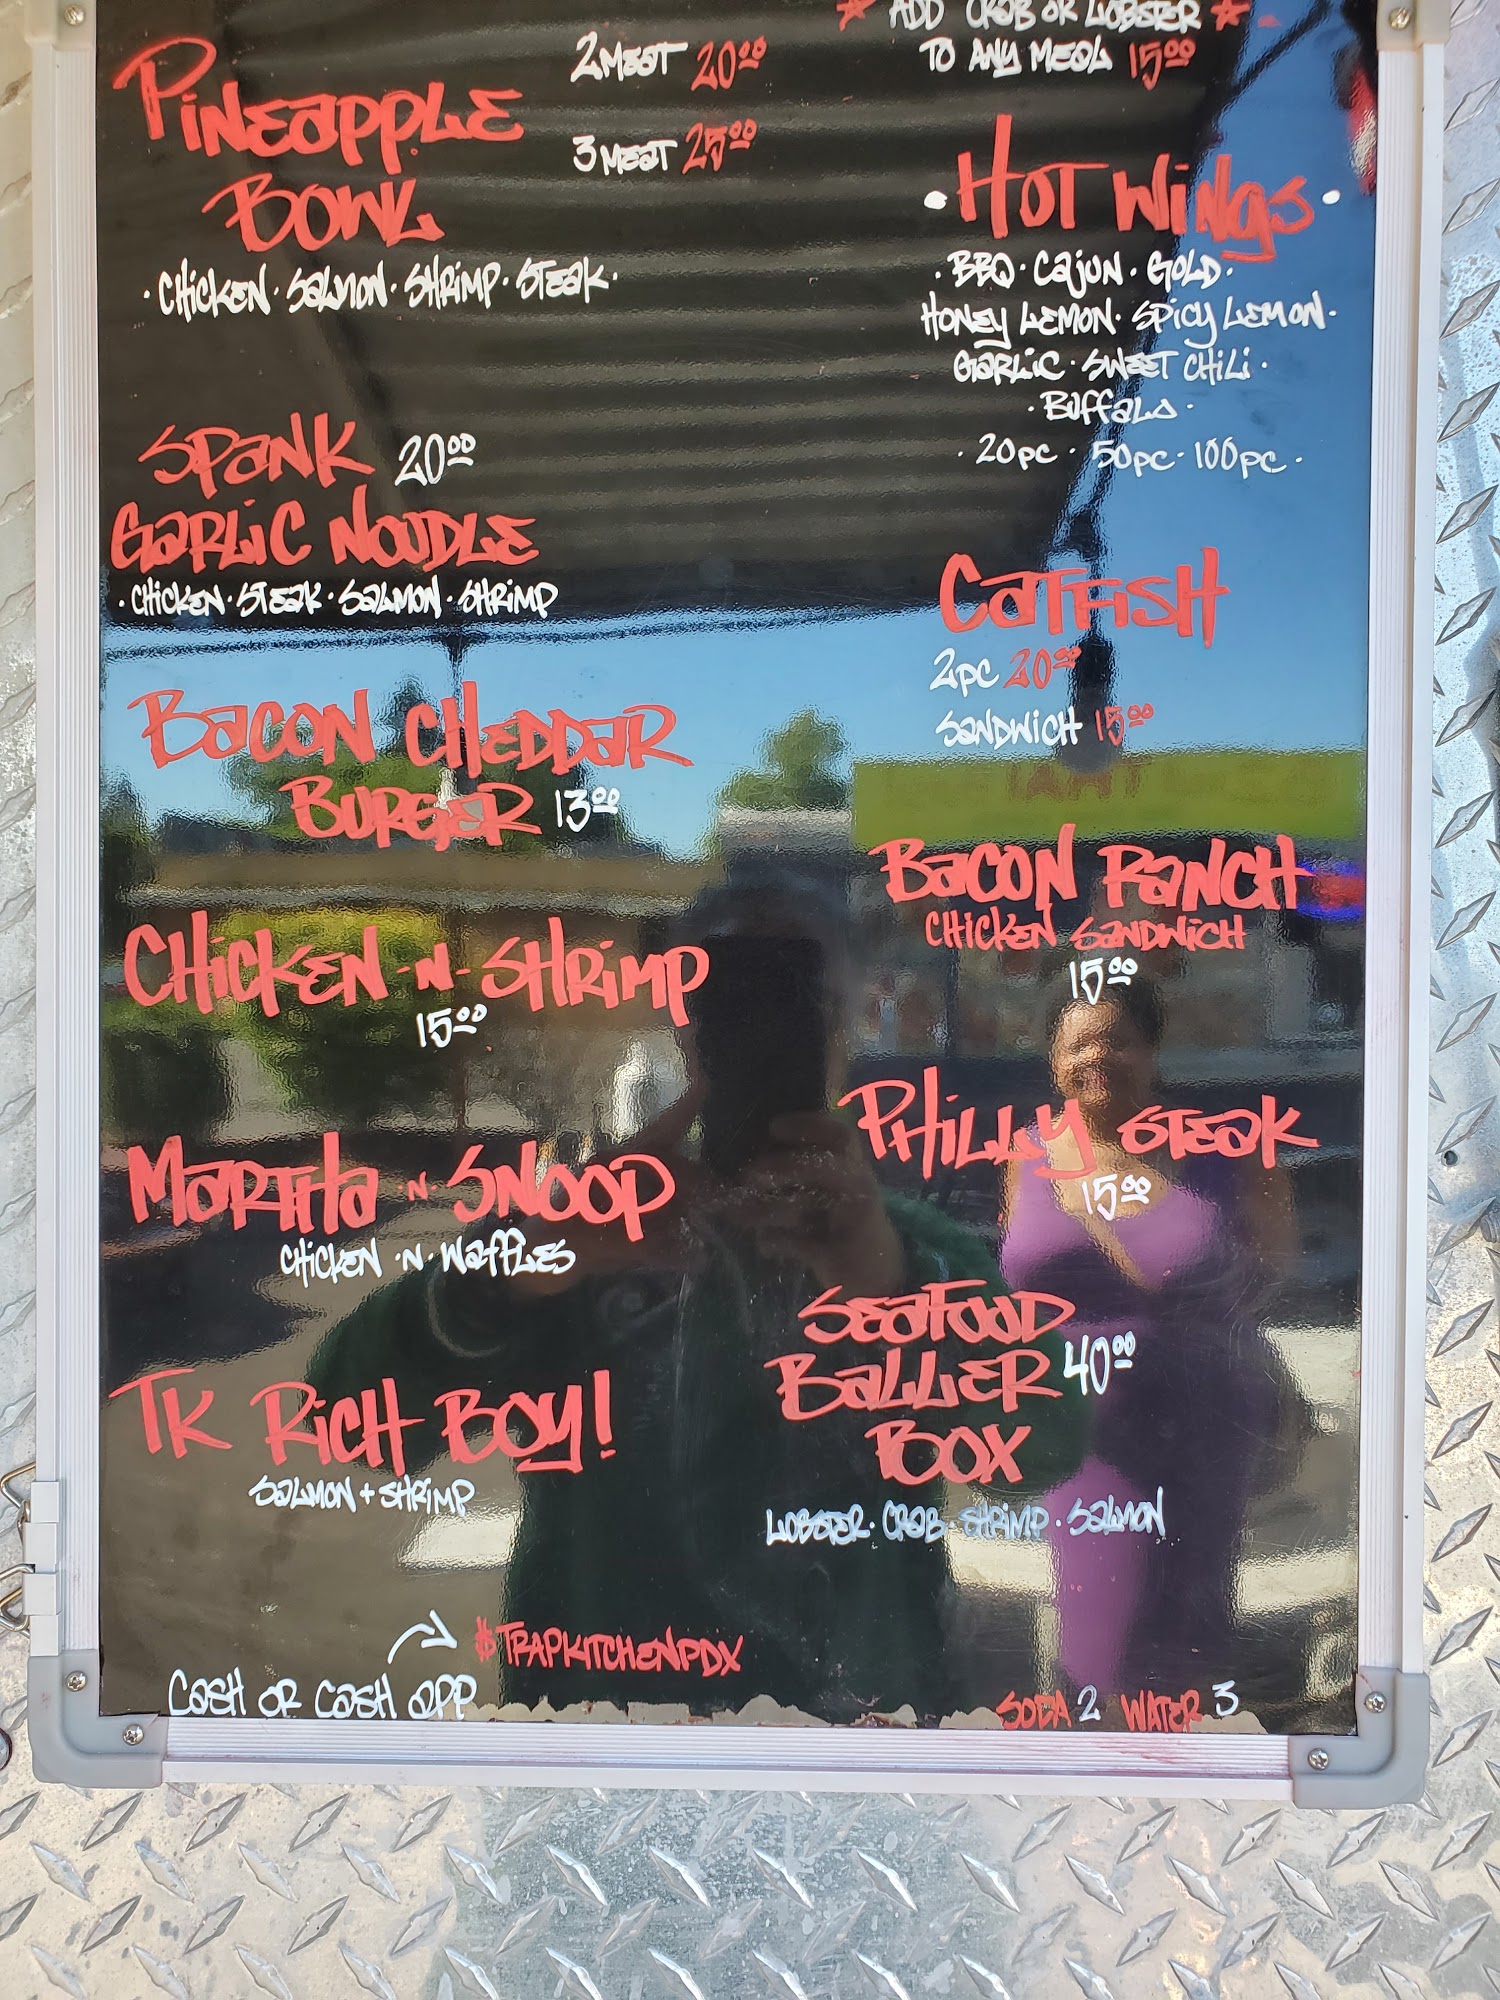 PINEAPPLE
BOWL
· CHICKEN · SALMON · SHRIMP · STEAK ·
2 MEAT 20.00
3 MEAT 25.00
SPANK 20.00
GARLIC NOODLE
· CHICKEN · STEAK · SALMON · SHRIMP
BACON CHEDDAR
BURGER 13.00
CHICKEN -N- SHRIMP
15.00
MARTHA ·N· SNOOP
CHICKEN ·N· WAFFLES
TK RICH BOY!
SALMON + SHRIMP
$TRAPKITCHENPDX
CASH OR CASH APP
ADD CRAB OR LOBSTER
TO ANY MEAL 15.00
· HOT WINGS ·
· BBQ · CAJUN · GOLD ·
HONEY LEMON · SPICY LEMON ·
GARLIC · SWEET CHILI ·
· BUFFALO ·
· 20pc · 50pc · 100pc ·
CATFISH
2pc 20.00
SANDWICH 15.00
BACON RANCH
CHICKEN SANDWICH
15.00
PHILLY STEAK
15.00
SEAFOOD
BALLER 40.00
BOX
LOBSTER · CRAB · SHRIMP · SALMON
SODA 2 WATER 3